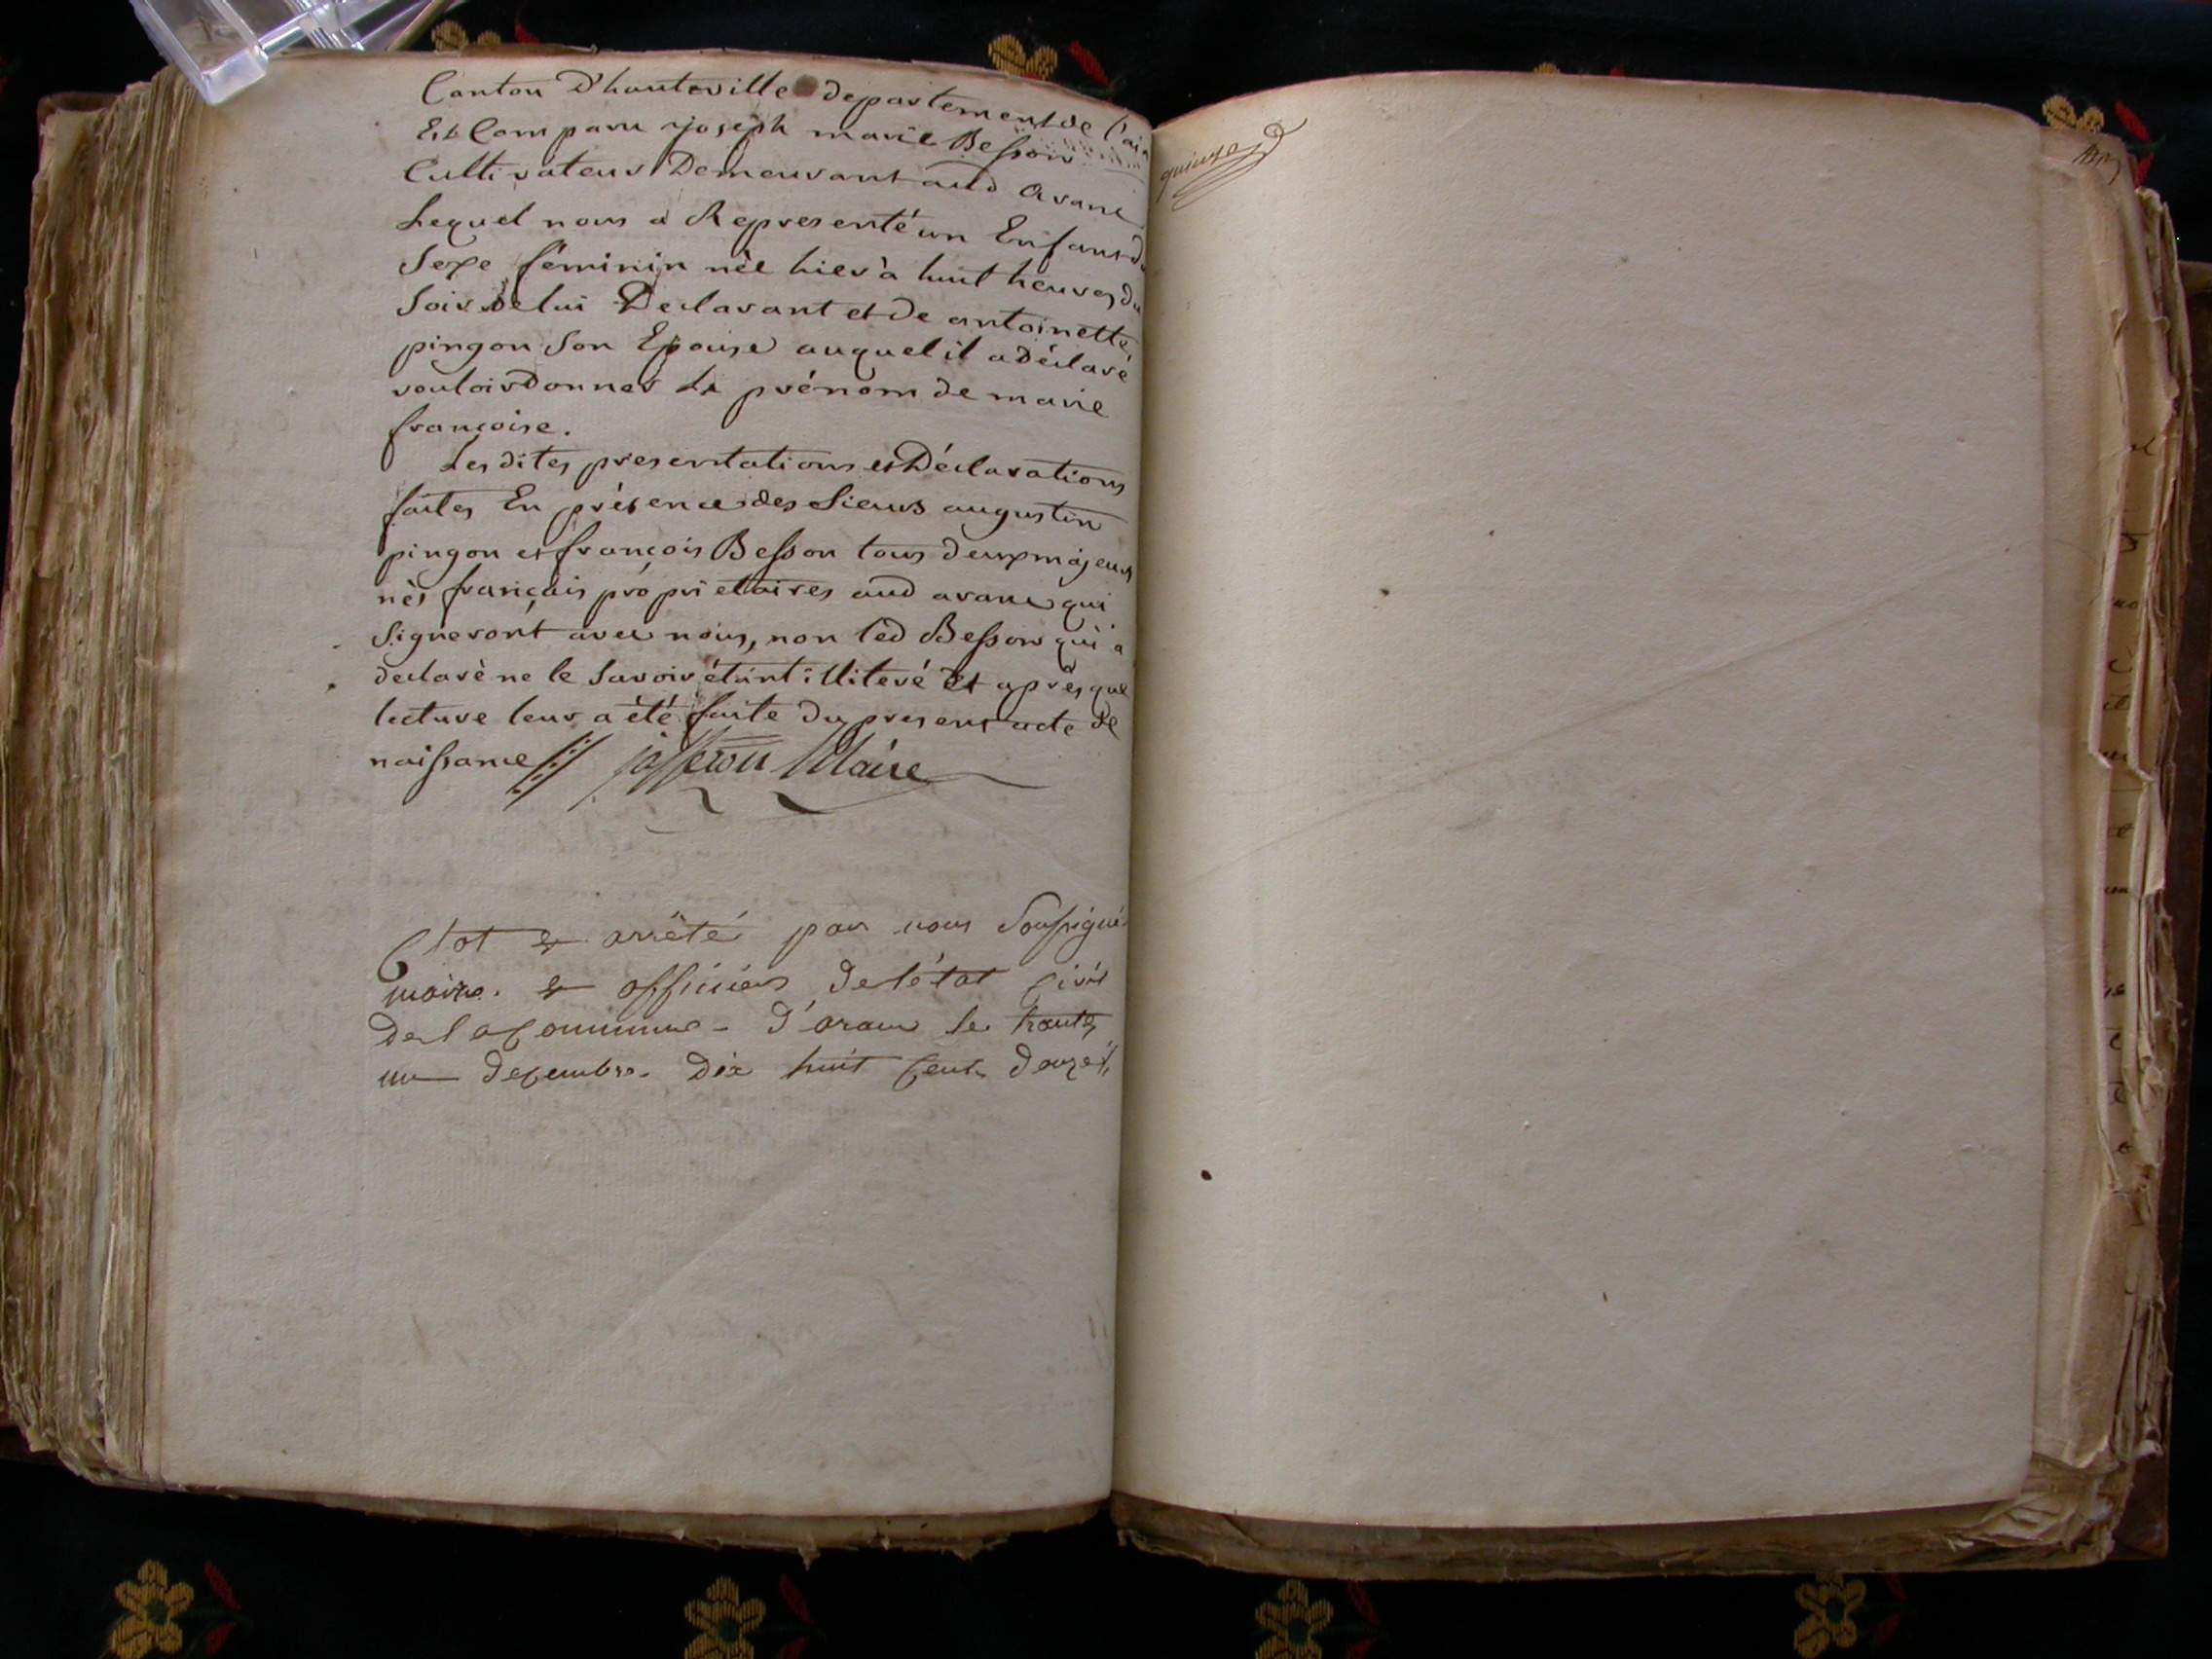 Canton D'hauteville departement de l'ain
Est Comparu joseph marie Besson
Cultivateur Demeurant aud Arane
Lequel nous a Representé un Enfant du
Sexe féminin née hier à huit heures du
Soir de lui Declarant et de antoinette
pingon Son Epouse auquel il a Déclaré
vouloir donner le prénom de marie
françoise.
Les dites presentations et Déclarations
faites En présence des Sieurs augustin
pingon et françois Besson tous deux majeurs
nés français propriétaires aud arane qui
Signeront avec nous, non led Besson qui a
declaré ne le Savoir étant illiteré Et après que
lecture leur a été faite du present acte de
naissance // josserou Maire
Clot & arrêté par nous Soussigné
maire. & officier de l'état Civil
de la Commune - d'aranc le trente
un decembre. Dix huit Cent douze //
quinze